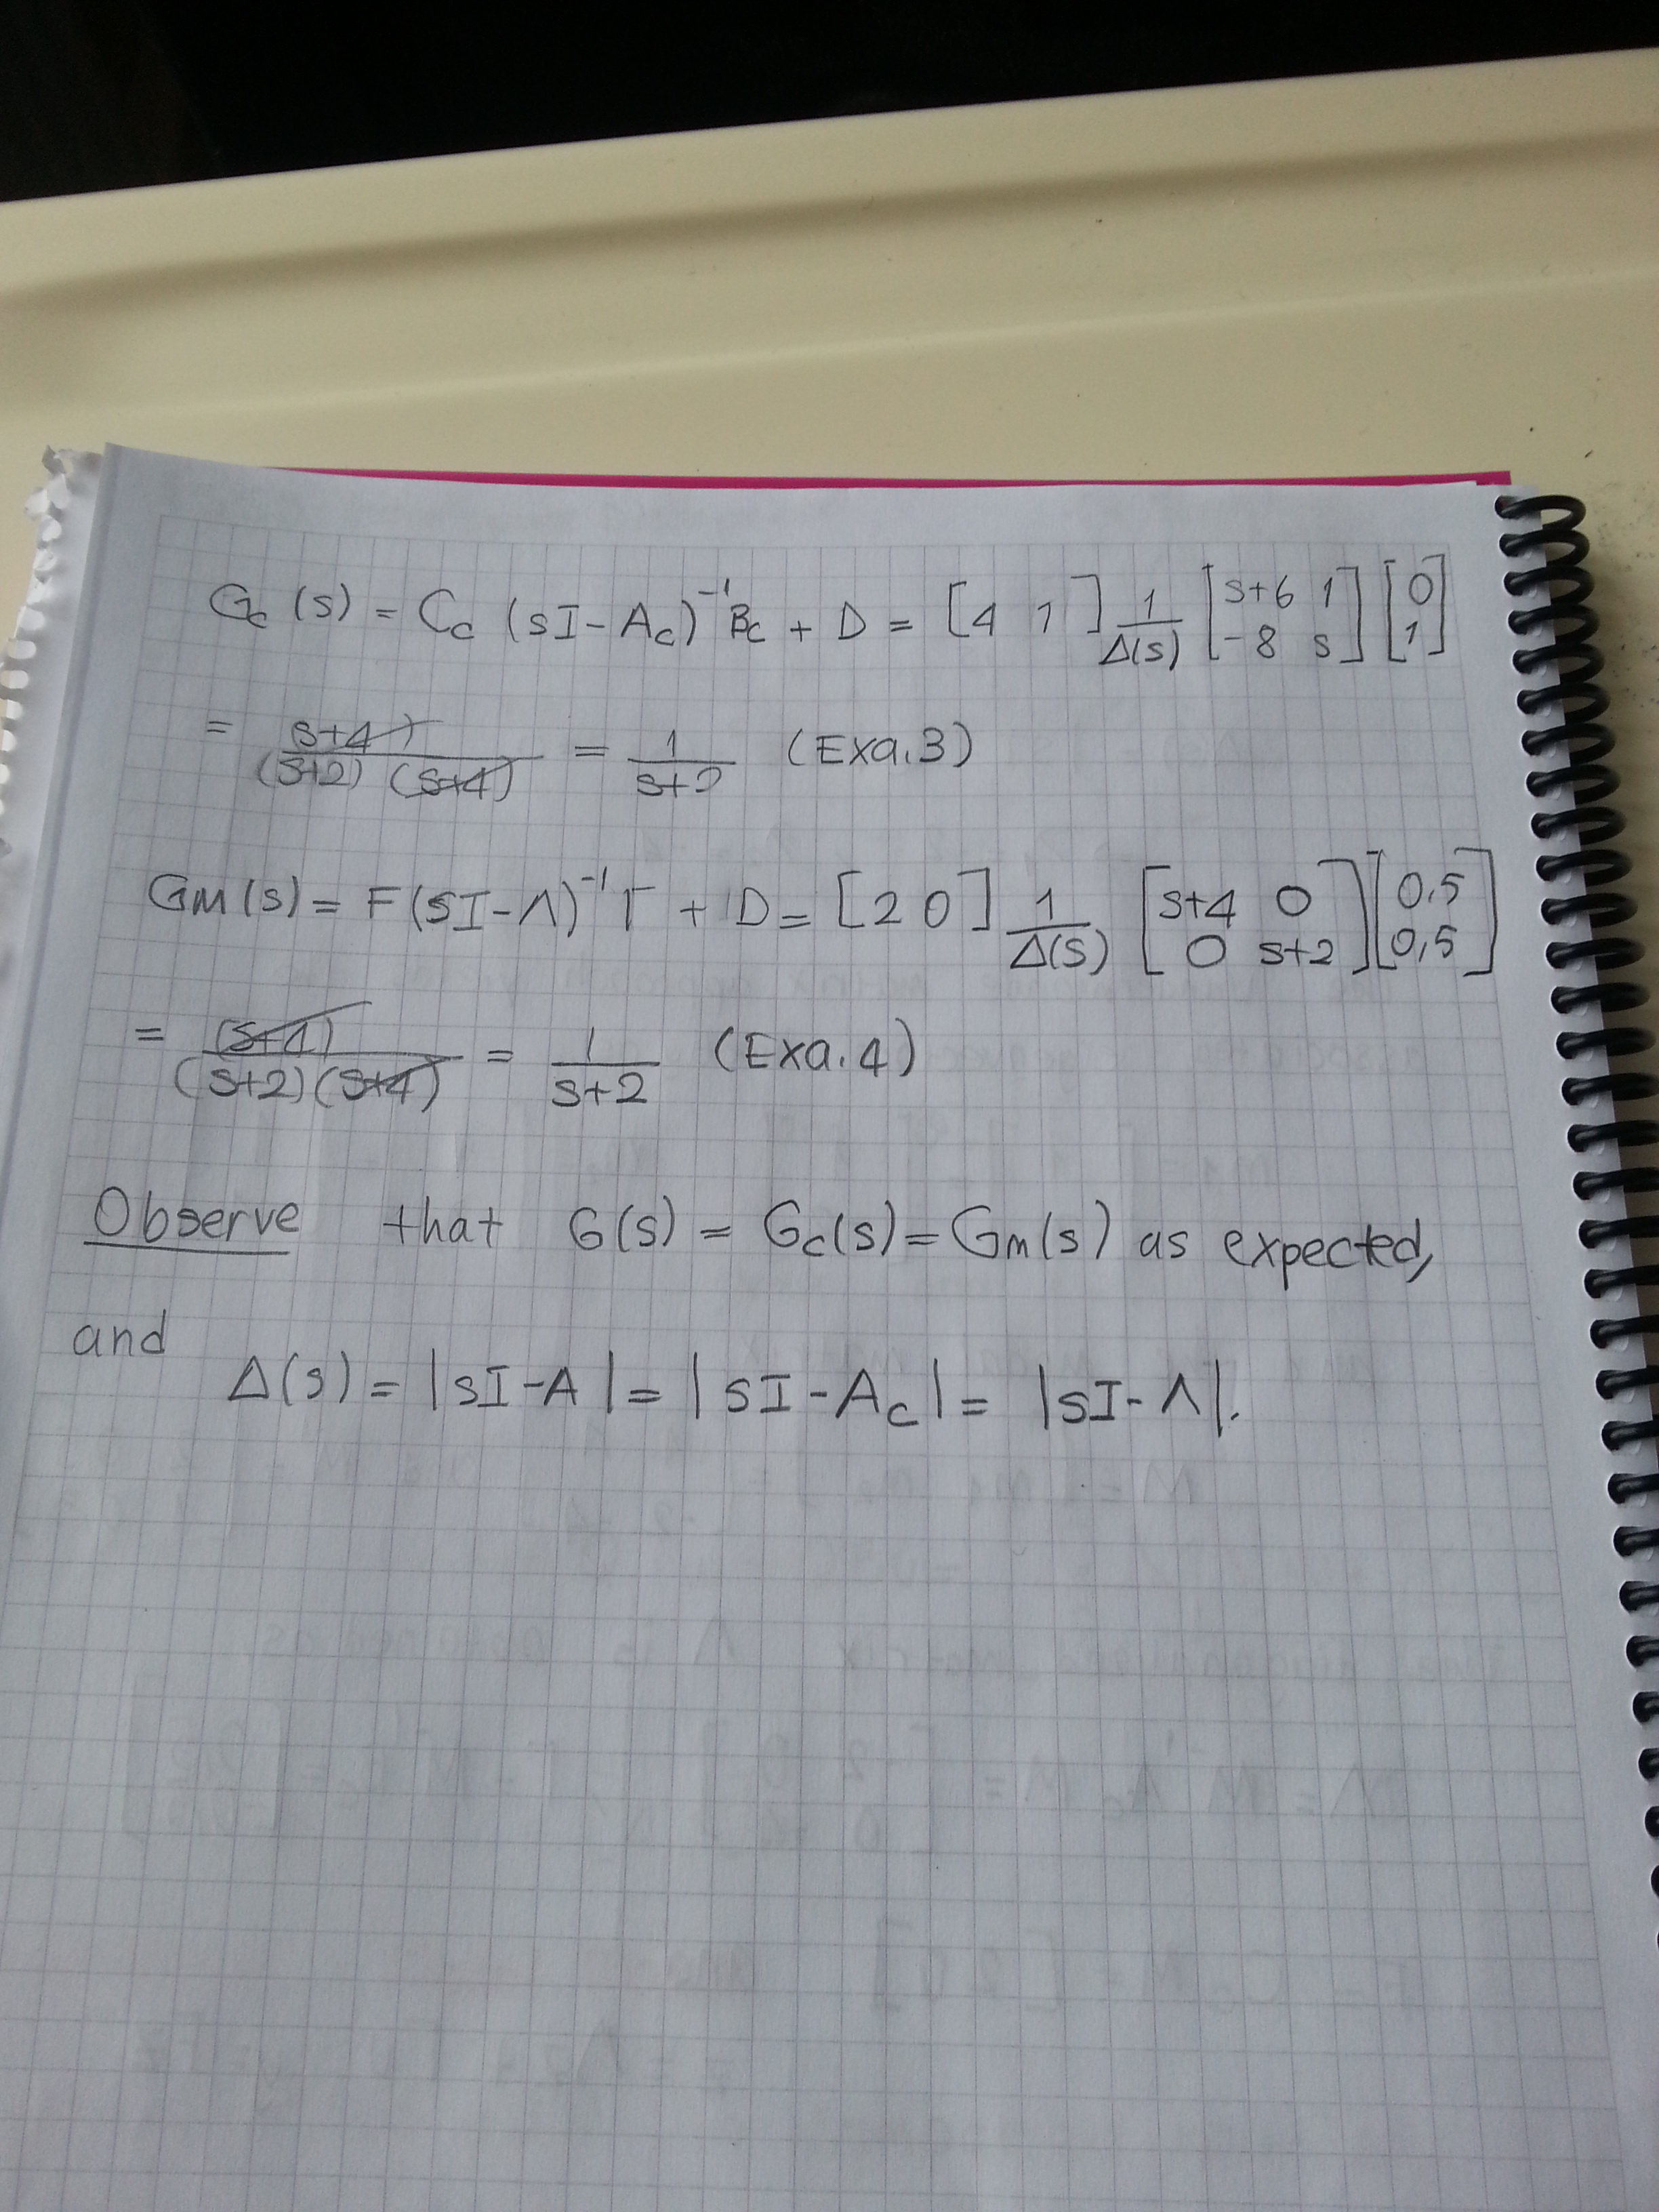 Gc (s) = Cc (sI - Ac)⁻¹ Bc + D = [4 1] 1/Δ(s) [s+6 1; -8 s] [0; 1]
= s+4) / (s+2) (s+4) = 1/s+2 (Exa.3)
Gm (s) = F(sI-Λ)⁻¹ Γ + D = [2 0] 1/Δ(s) [s+4 0; 0 s+2] [0,5; 0,5]
= (s+4) / (s+2)(s+4) = 1/s+2 (Exa.4)
Observe that G(s) = Gc(s) = Gm(s) as expected,
and
Δ(s) = |sI-A| = |sI-Ac| = |sI-Λ|.